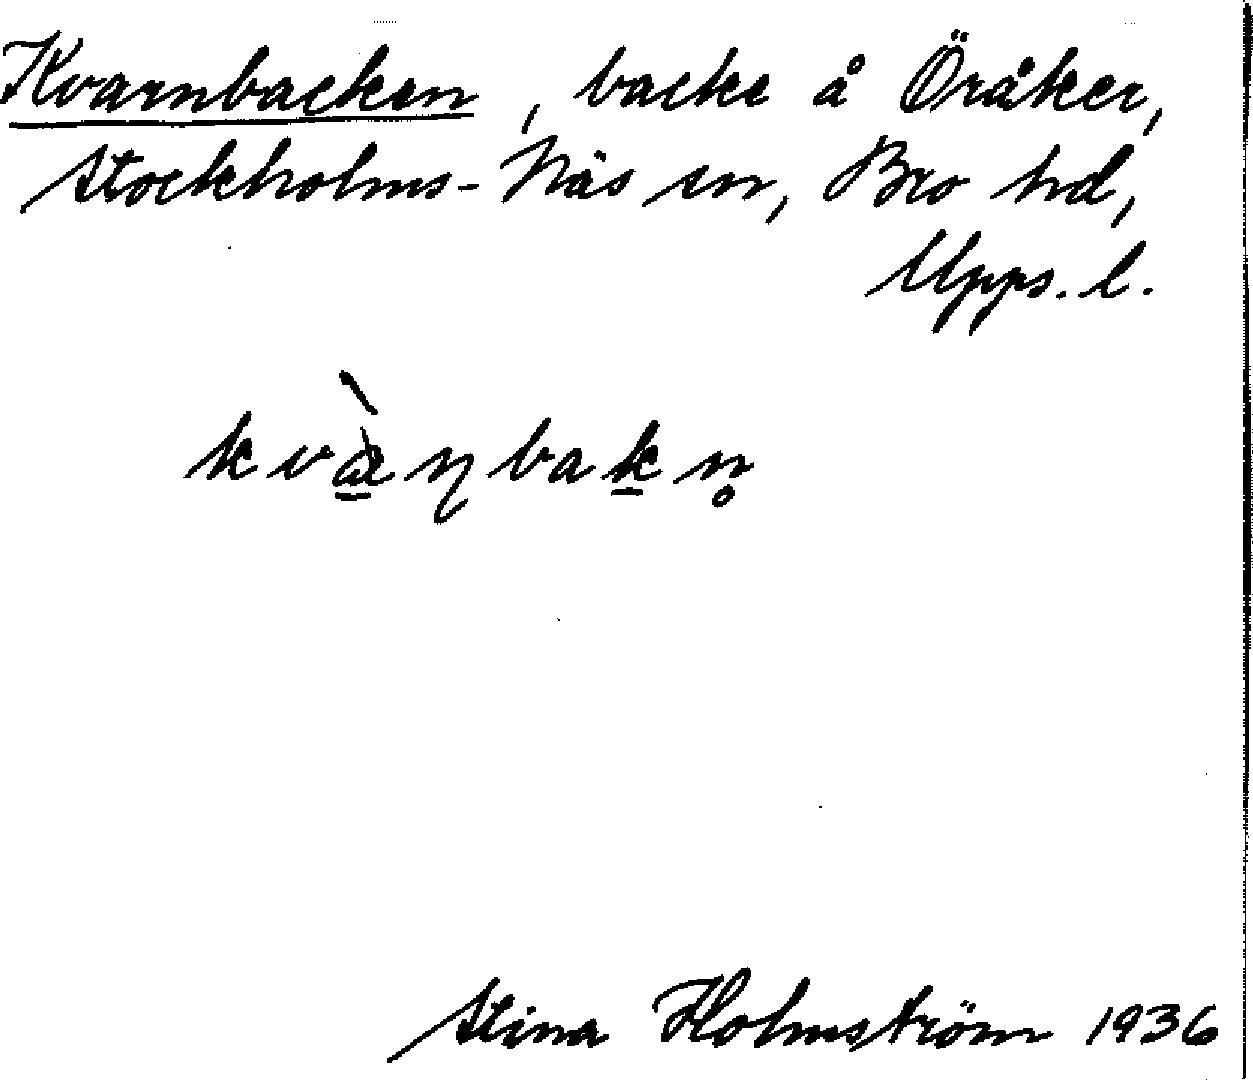 Kvarnbacken, backe å Öråker,
Stockholms-Näs sn, Bro hd,
Upps. l.
kvæ̀ɳbakn̥
Stina Holmström 1936